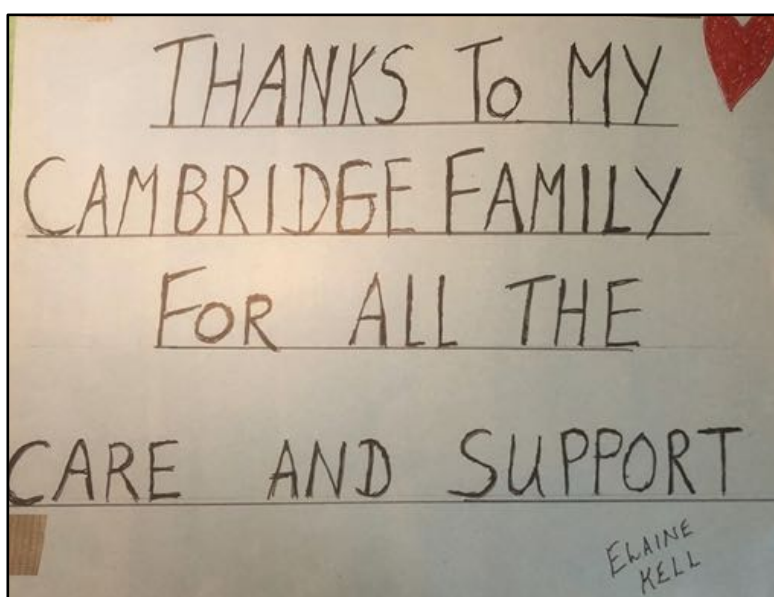 THANKS TO MY
CAMBRIDGE FAMILY
FOR ALL THE
CARE AND SUPPORT
ELAINE
KELL